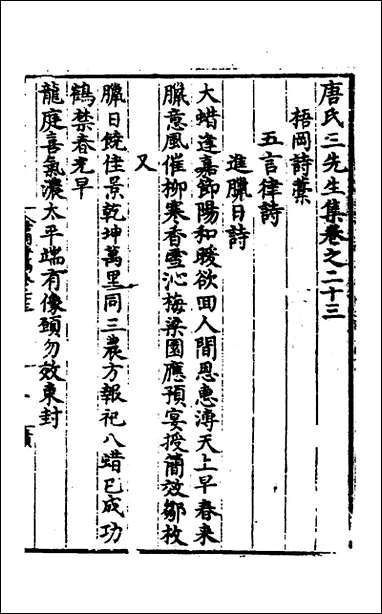 唐氏三先生集卷之二十三
梧岡詩藁
五言律詩
進臘日詩
大蜡逢嘉節陽和暖欲回人間恩惠溥天上早春来
臘意風催柳寒香雪沁梅梁園應預宴授簡效鄒枚
又
臘日饒佳景乾坤萬里同三農方報祀八蜡已成功
鶴禁春光早
龍庭喜氣濃太平端有像頌勿效東封